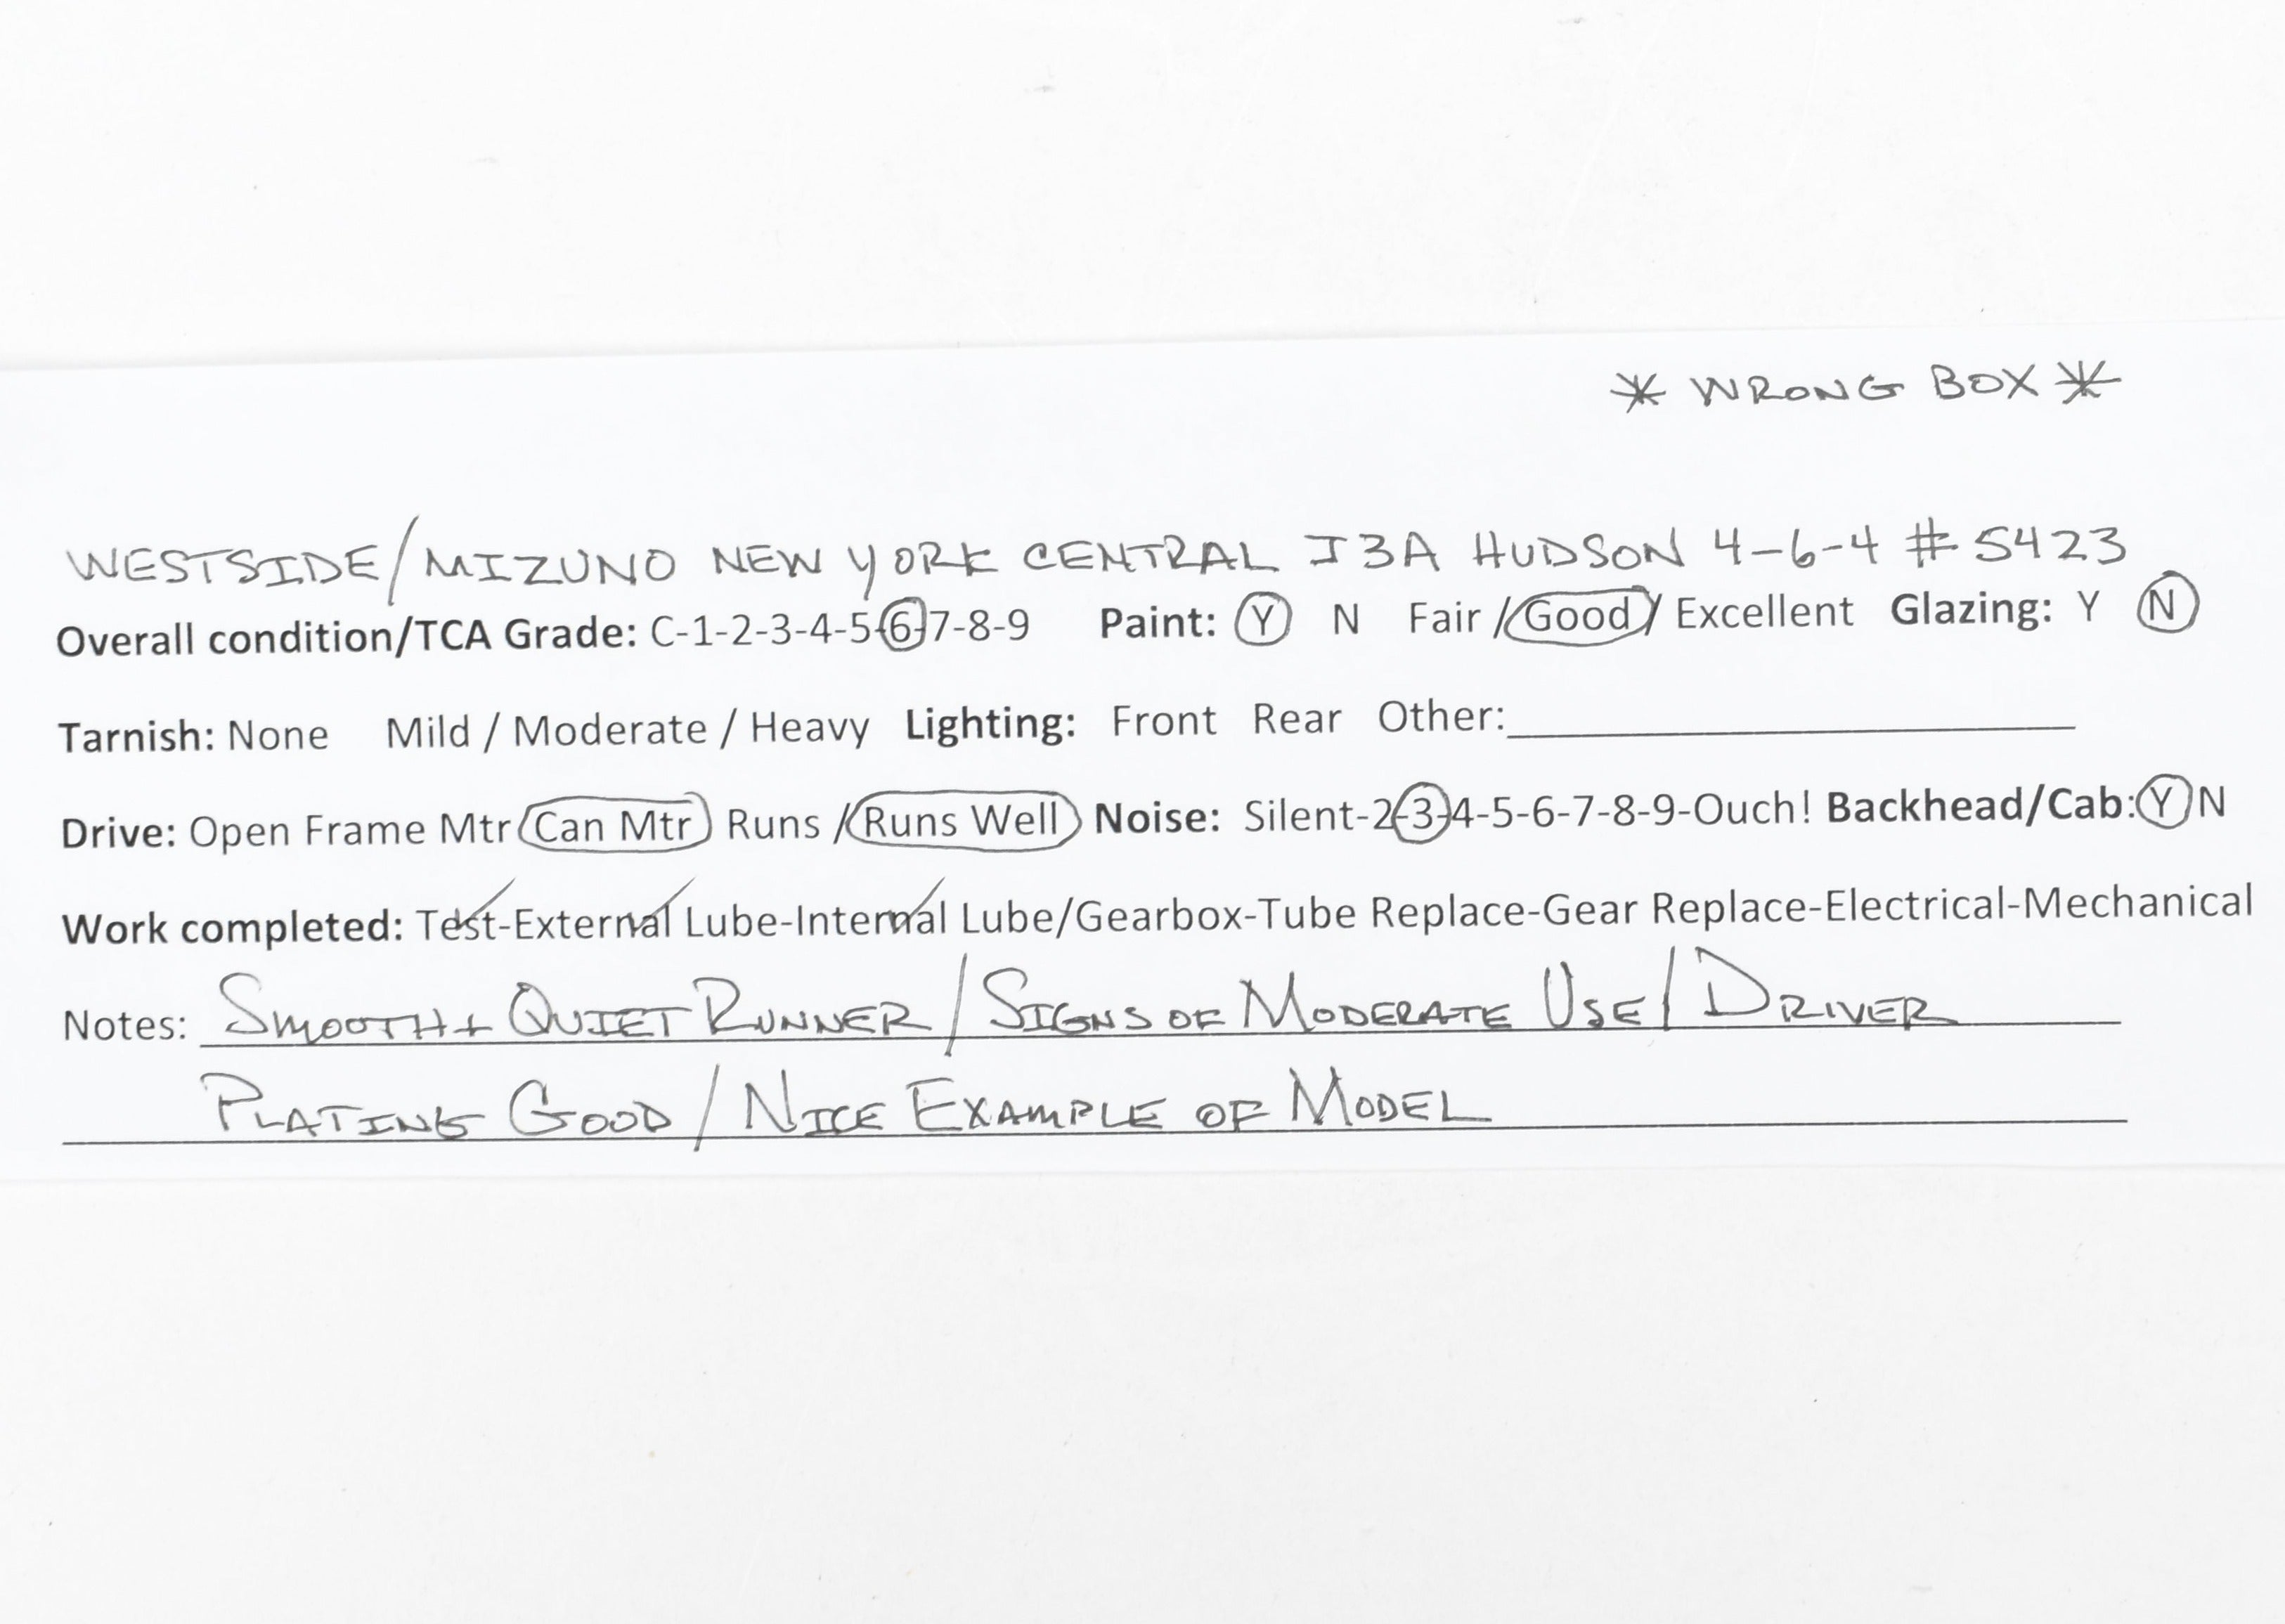 * WRONG BOX *
WESTSIDE/MIZUNO NEW YORK CENTRAL J3A HUDSON 4-6-4 # 5423
Overall condition/TCA Grade: C-1-2-3-4-5-6-7-8-9 Paint: Y N Fair / Good / Excellent Glazing: Y N
Tarnish: None Mild / Moderate / Heavy Lighting: Front Rear Other:
Drive: Open Frame Mtr Can Mtr Runs / Runs Well Noise: Silent-2-3-4-5-6-7-8-9-Ouch! Backhead/Cab: Y N
Work completed: Test-External Lube-Internal Lube/Gearbox-Tube Replace-Gear Replace-Electrical-Mechanical
Notes: SMOOTH + QUIET RUNNER / SIGNS OF MODERATE USE / DRIVER
PLATING GOOD / NICE EXAMPLE OF MODEL